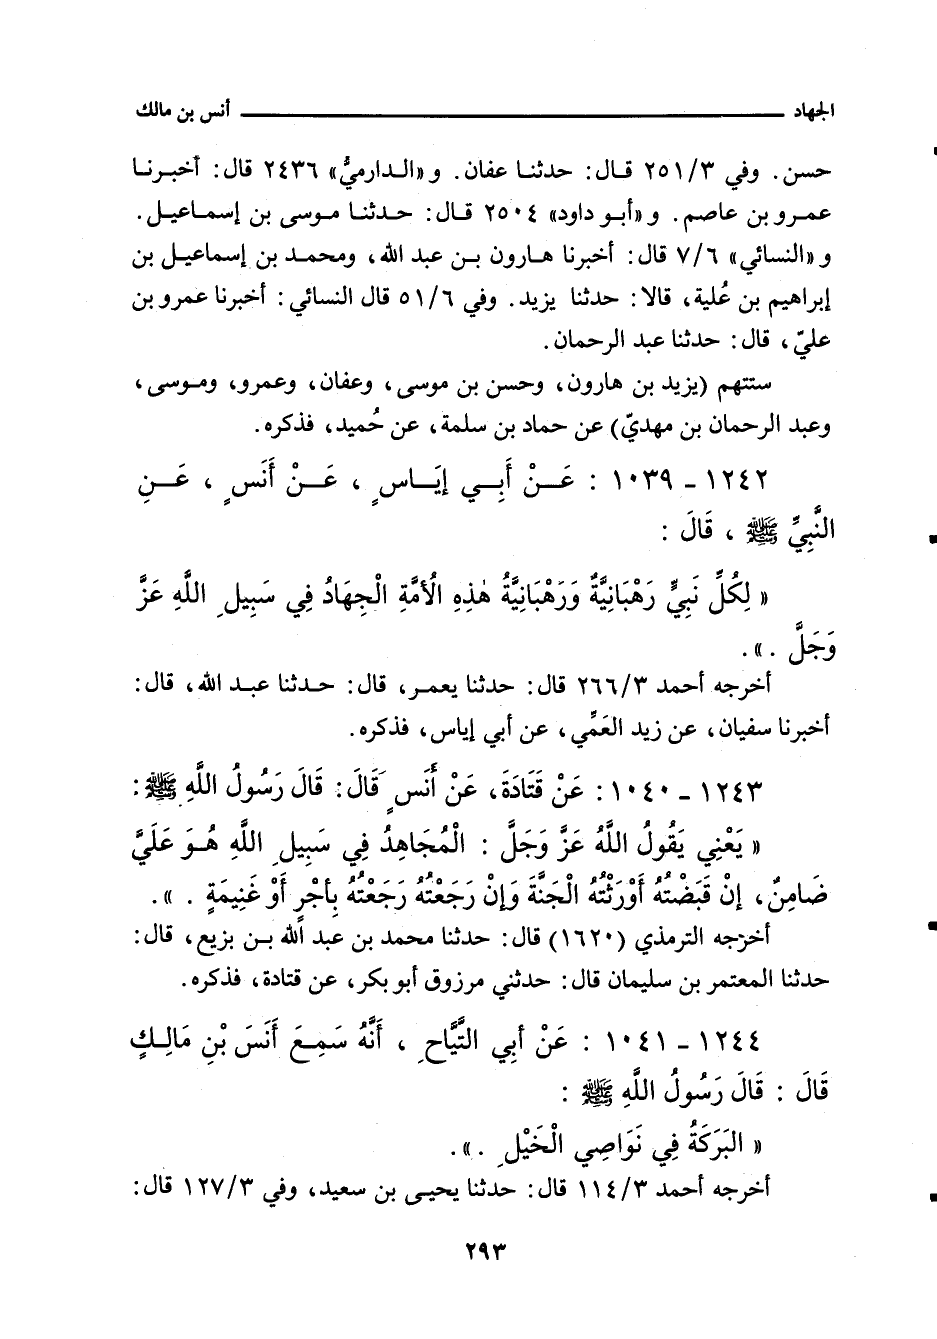 الجهاد ــــــــــــ أنس بن مالك
حسن. وفي ٢٥١/٣ قال: حدثنا عفان. و«الدارميُّ» ٢٤٣٦ قال: أخبرنا
عمرو بن عاصم. و«أبو داود» ٢٥٠٤ قال: حدثنا موسى بن إسماعيل.
و«النسائي» ٧/٦ قال: أخبرنا هارون بن عبد الله، ومحمد بن إسماعيل بن
إبراهيم بن عُلية، قالا: حدثنا يزيد. وفي ٥١/٦ قال النسائي: أخبرنا عمرو بن
عليّ، قال: حدثنا عبد الرحمان.
ستتهم (يزيد بن هارون، وحسن بن موسى، وعفان، وعمرو، وموسى،
وعبد الرحمان بن مهديّ) عن حماد بن سلمة، عن حُميد، فذكره.
١٢٤٢ - ١٠٣٩ : عَنْ أَبِي إيَاسٍ ، عَنْ أَنَسٍ ، عَنِ
النَّبِيِّ ﷺ ، قَالَ :
« لِكُلِّ نَبِيٍّ رَهْبَانِيَّةٌ وَرَهْبَانِيَّةُ هٰذِهِ الْأُمَّةِ الْجِهَادُ فِي سَبِيلِ اللَّهِ عَزَّ
وَجَلَّ . ».
أخرجه أحمد ٢٦٦/٣ قال: حدثنا يعمر، قال: حدثنا عبد الله، قال:
أخبرنا سفيان، عن زيد العَمِّي، عن أبي إياس، فذكره.
١٢٤٣ - ١٠٤٠ : عَنْ قَتَادَةَ، عَنْ أَنَسٍ قَالَ: قَالَ رَسُولُ اللَّهِ ﷺ:
« يَعْنِي يَقُولُ اللَّهُ عَزَّ وَجَلَّ : الْمُجَاهِدُ فِي سَبِيلِ اللَّهِ هُوَ عَلَيَّ
ضَامِنٌ، إنْ قَبَضْتُهُ أَوْرَثْتُهُ الْجَنَّةَ وَإنْ رَجَعْتُهُ رَجَعْتُهُ بِأَجْرٍ أَوْ غَنِيمَةٍ . ».
أخرجه الترمذي (١٦٢٠) قال: حدثنا محمد بن عبد الله بن بزيع، قال:
حدثنا المعتمر بن سليمان قال: حدثني مرزوق أبو بكر، عن قتادة، فذكره.
١٢٤٤ - ١٠٤١ : عَنْ أبِي التَّيَّاحِ ، أَنَّهُ سَمِعَ أَنَسَ بْنِ مَالِكٍ
قَالَ : قَالَ رَسُولُ اللَّهِ ﷺ :
« الْبَرَكَةُ فِي نَوَاصِي الْخَيْلِ . ».
أخرجه أحمد ١١٤/٣ قال: حدثنا يحيى بن سعيد، وفي ١٢٧/٣ قال:
٢٩٣